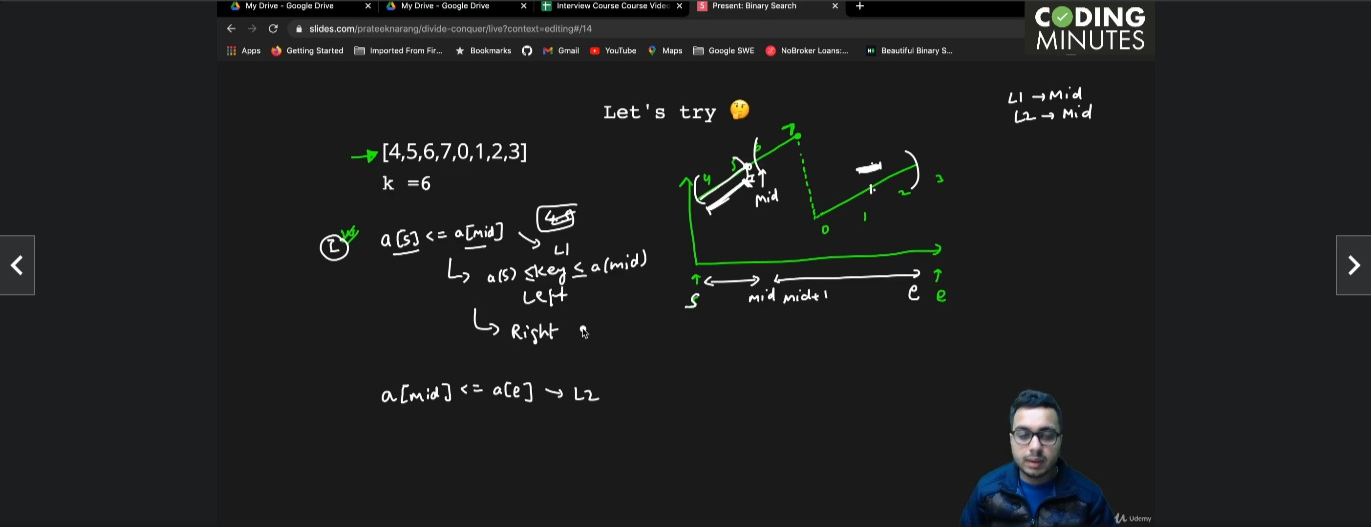 My Drive - Google Drive
My Drive - Google Drive
Interview Course Course Videc
Present: Binary Search
slides.com/prateeknarang/divide-conquer/live?context=editing#/14
Apps
Getting Started
Imported From Fir...
Bookmarks
Gmail
YouTube
Maps
Google SWE
NoBroker Loans:...
Beautiful Binary S...
CODING
MINUTES
L1 → Mid
L2 → Mid
Let's try 🤔
→ [4,5,6,7,0,1,2,3]
k =6
a[s] <= a[mid] → L1
↳ a(s) ≤ key ≤ a(mid)
Left
↳ Right
a[mid] <= a[e] → L2
4 5 6 7
mid
0 1 2 3
s mid mid+1 e e
Udemy